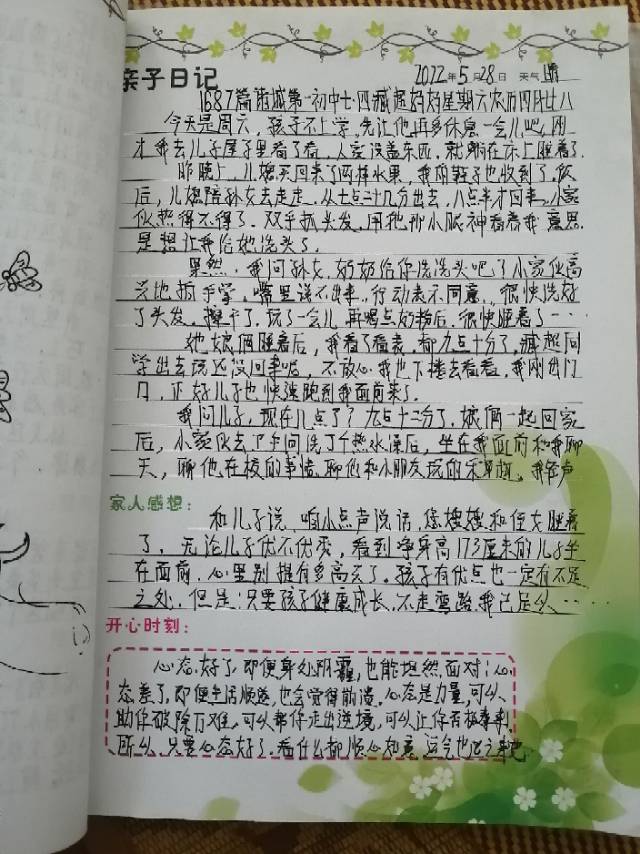 亲子日记
2022年5月28日 天气晴
1687篇诸城第一初中七·四臧超妈妈星期六农历四月廿八
今天是周六，孩子不上学，先让他再多休息一会儿吧！刚
才我去儿子屋子里看了看，人家没盖东西，就躺在床上睡着了
昨晚上，儿媳买回来了两样水果，我两鞋子也收到了。饭
后，儿媳陪孙女去走走，从七点二十几分出去，八点半才回来。小家
伙热得不得了，双手抓头发，用他那小眼神看着我，意思
是想让我给她洗头了。
果然，我问孙女，奶奶给你洗洗头吧？小家伙高
兴地拍手学，嘴里说不出来，行动表示同意，很快洗好
了头发，擦干了，玩了一会儿，再喝点奶粉后，很快睡着了…
她娘俩睡着后，我看了看表，都九点十分了，臧超同
学出去玩还没回来呢，不放心，我也下楼去看看，我刚出门
口，正好儿子也快跑到我面前来了。
我问儿子，现在几点了？九点十二分了，娘俩一起回家
后，小家伙去卫生间洗了个热水澡后，坐在我面前和我聊
天，聊他在校的事情，聊他和小朋友玩的，我轻声
家人感想：
和儿子说，咱小点声说话，您嫂嫂和侄女睡着
了。无论儿子优不优秀，看到净身高173厘米的儿子坐
在面前，心里别提有多高兴了。孩子有优点也一定有不足
之处，但是：只要孩子健康成长，不走弯路，我已足以……
开心时刻：
心态好了，即便身处阴霾，也能坦然面对；心
态差了，即便生活顺遂，也会觉得崩溃。心态是力量，可以
助你破除万难，可以帮你走出逆境，可以让你否极泰来，
所以，只要心态好了，看什么都顺心如意，运气也随之来